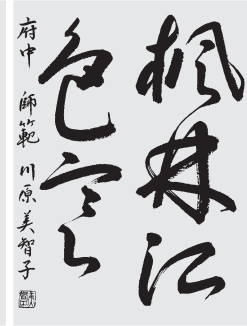 楓林江
色寒
府中 師範 川原美智子